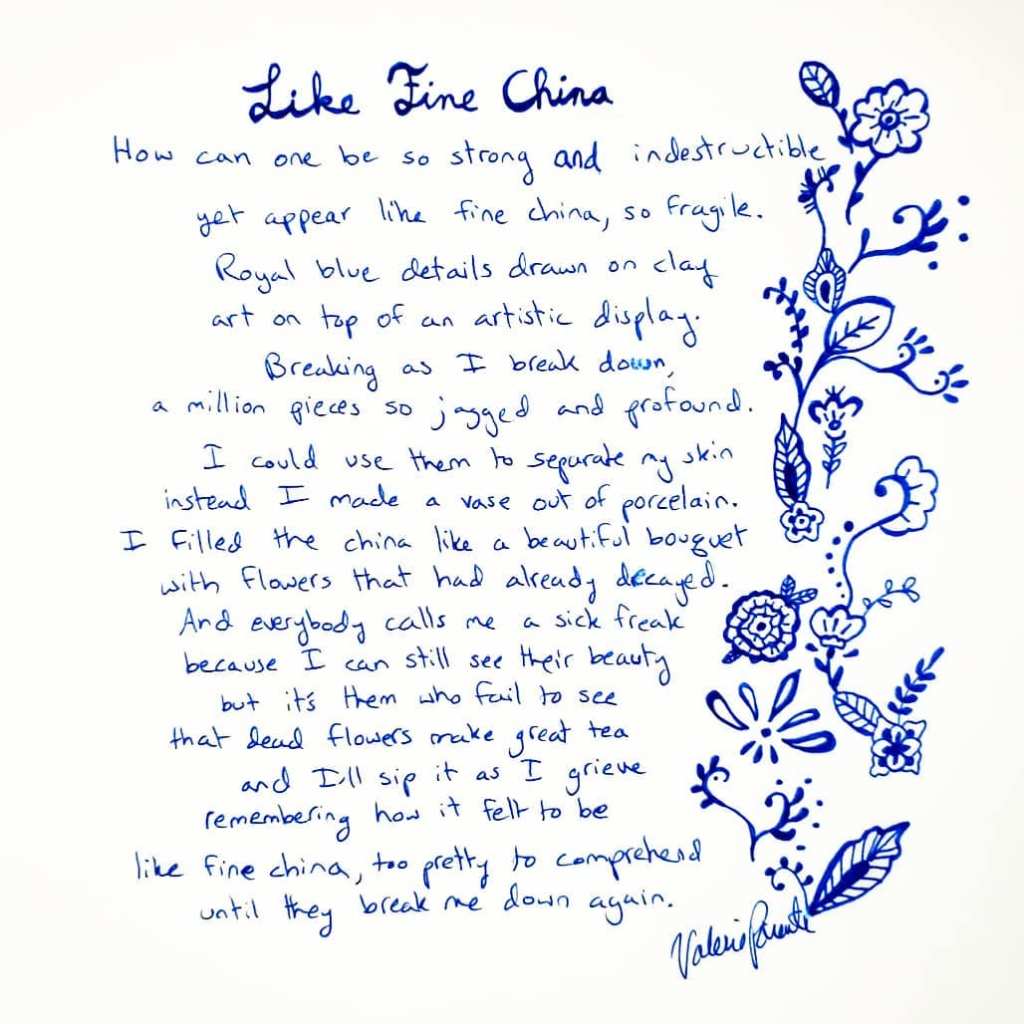 Like Fine China
How can one be so strong and indestructible
yet appear like fine china, so fragile.
Royal blue details drawn on clay
art on top of an artistic display.
Breaking as I break down,
a million pieces so jagged and profound.
I could use them to separate my skin
instead I made a vase out of porcelain.
I filled the china like a beautiful bouquet
with flowers that had already decayed.
And everybody calls me a sick freak
because I can still see their beauty
but it's them who fail to see
that dead flowers make great tea
and I'll sip it as I grieve
remembering how it felt to be
like fine china, too pretty to comprehend
until they break me down again.
Valerie Parente